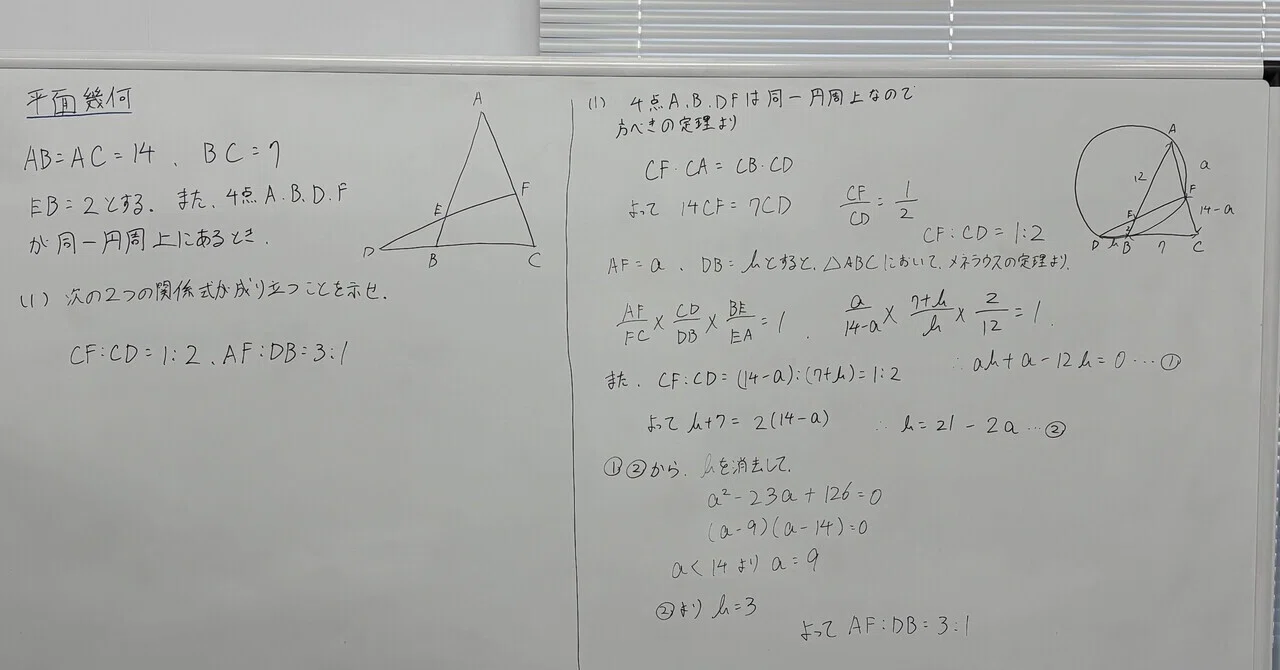 平面幾何
AB=AC=14、BC=7
EB=2とする。また、4点A.B.D.F
が同一円周上にあるとき、
(1) 次の2つの関係式が成り立つことを示せ.
CF:CD=1:2、AF:DB=3:1
A
F
E
D
B
C
(1) 4点A.B.DFは同一円周上なので
方べきの定理より
CF・CA=CB・CD
よって 14CF=7CD CF/CD=1/2
CF:CD=1:2
AF=a、DB=hとすると、△ABCにおいて、メネラウスの定理より、
AF/FC×CD/DB×BE/EA=1、 a/14-a×7+h/h×2/12=1.
∴ ah+a-12h=0…①
また、CF:CD=(14-a):(7+h)=1:2
よって h+7=2(14-a) ∴ h=21-2a…②
①②から、hを消去して、
a²-23a+126=0
(a-9)(a-14)=0
a<14より a=9
②より h=3
よって AF:DB=3:1
A
a
12
F
14-a
E
2
D
h
B
7
C